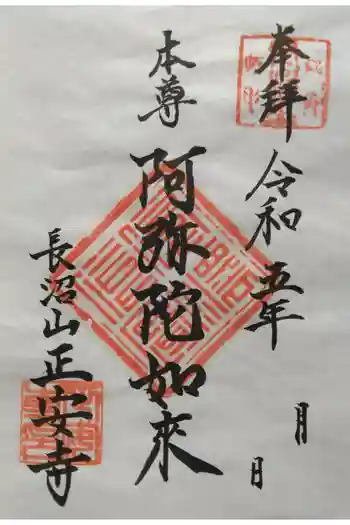 奉拝
令和五年
月
日
本尊
阿弥陀如来
長沼山正安寺